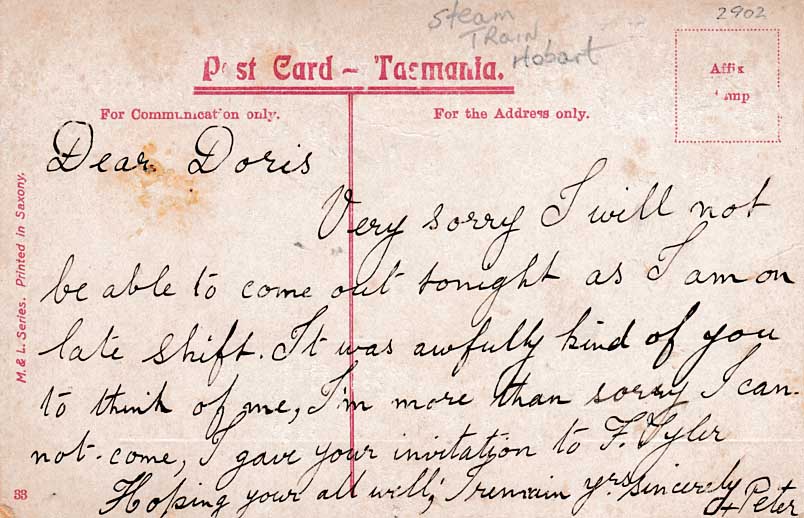 2902
Steam
Train
Hobart
Post Card – Tasmania.
Affix
Stamp
For Communication only.
For the Address only.
Dear Doris
Very sorry I will not
be able to come out tonight as I am on
late shift. It was awfully kind of you
to think of me, I'm more than sorry I can-
not-come, I gave your invitation to F. Tyler
Hoping your all well, I remain yrs sincerely
Peter
M. & L. Series. Printed in Saxony.
33